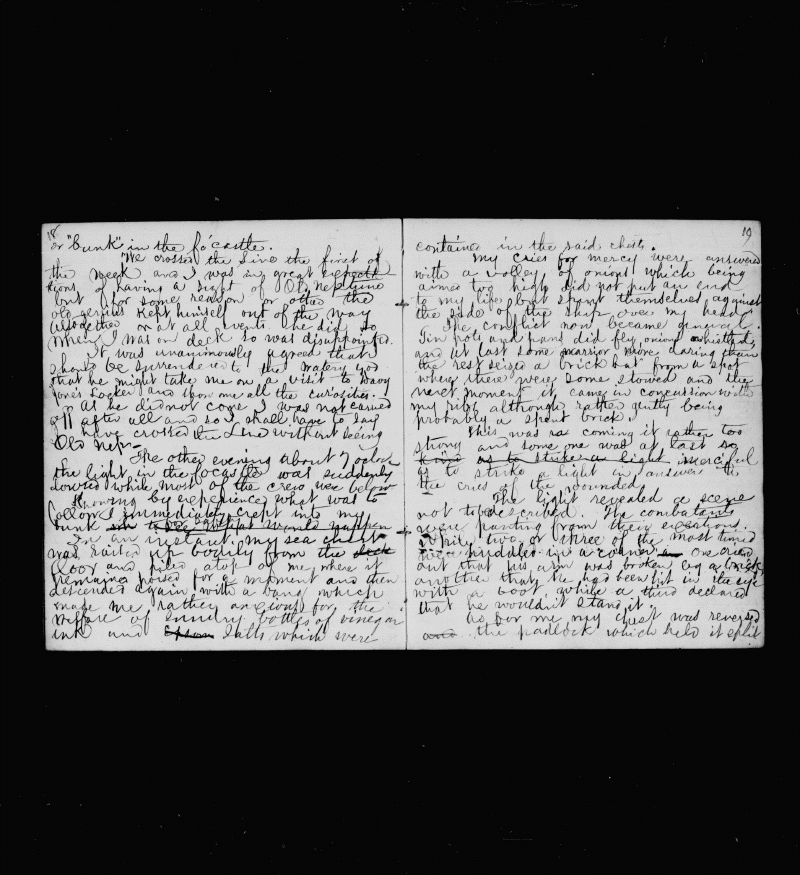 18
or "bunk" in the fo'castle.
"We crossed the Line the first of
the week and I was in great expecta
tions of having a sight of Old Neptune
but for some reason or other the
old genius kept himself out of the way
altogether or at all events he did so
when I was on deck so was disappointed.
It was unanimously agreed that I
should be surrendered to the watery god
that he might take me on a visit to Davy
Jones Locker and show me all the curiosities.
As he did not come I was not carried
off after all and so I shall have to say
I have crossed the Line without seeing
Old Nep-
The other evening about 7 oclock
the light in the focastle was suddenly
dowsed while most of the crew were below
Knowing by experience what was to
follow I immediately crept into my
bunk to see what would happen
In an instant my sea chest
was raised up bodily from the deck
floor and piled atop of me where it
remained poised for a moment and then
descended again with a bang which
made me rather anxious for the
welfare of sundry bottles of vinegar
ink and Epsom Salts which were
19
contained in the said chest.
My cries for mercy were answered
with a volley of onions which being
aimed too high did not put an end
to my life but spent themselves against
the side of the ship over my head.
The conflict now became general.
Tin pots and pans did fly, onions whistled,
and at last some warrior more daring than
the rest seized a brick bat from a spot
where there were some stowed and the
next moment it came in concussion with
my ribs although rather gently being
probably a spent brick.
This was coming it rather too
strong and some one was at last so
kind as to strike a light merciful
as to strike a light in answer to
the cries of the wounded.
The light revealed a scene
not to be described. The combatants
were panting from their exertions.
While two or three of the most timid
were huddled in a corner. One cried
out that his arm was broken by a brick
another that he had been hit in the eye
with a boot, while a third declared
that he wouldn't stand it.
As for me my chest was reversed
and the padlock which held it split